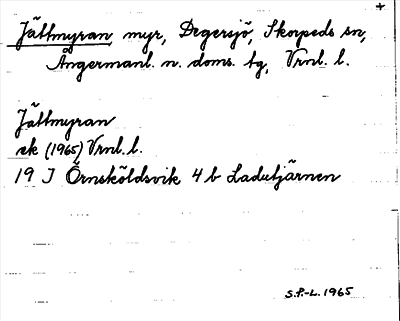 +
Jättmyran myr, Degersjö, Skorpeds sn,
Ångermanl. n. doms. tg, Vrnl. l.
Jättmyran
ek (1965) Vrnl. l.
19 J Örnsköldsvik 4 b Ladutjärnen
S.F.-L. 1965